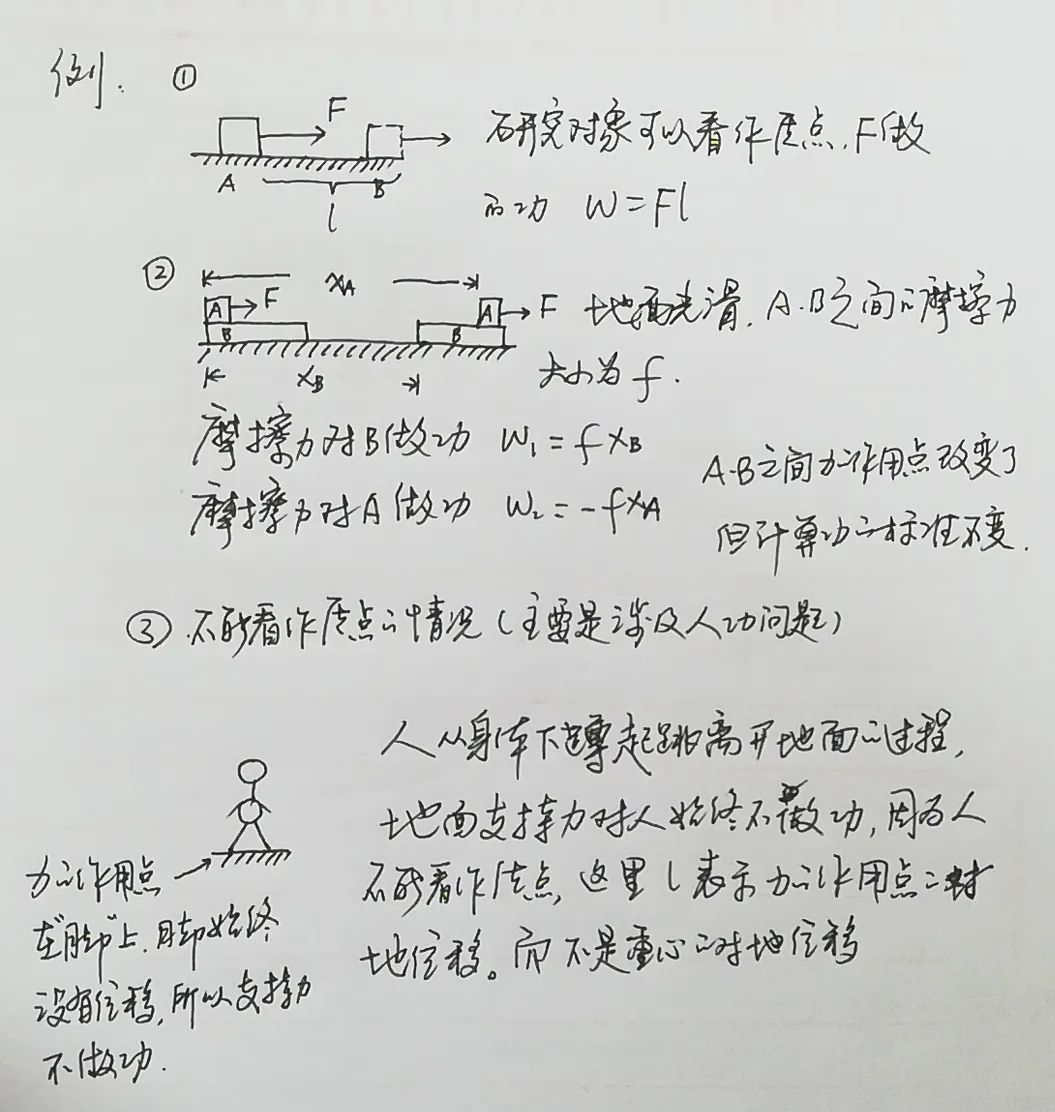 例. ①
F
A
B
l
研究对象可以看作质点, F做
的功 W=Fl
②
xA
A F
B
A F
B
xB
地面光滑, A·B之间的摩擦力
大小为 f.
摩擦力对B做功 W₁=fxB
摩擦力对A做功 W₂=-fxA
A·B之间力的作用点改变了
但计算功的标准不变.
③ 不能看作质点的情况(主要是涉及人的问题)
人从身体下蹲起跳离开地面的过程,
地面支持力对人始终不做功, 因为人
不能看作质点, 这里 l 表示力的作用点的对
地位移。而不是重心的对地位移
力的作用点
在"脚"上, 脚始终
没有位移, 所以支持力
不做功.